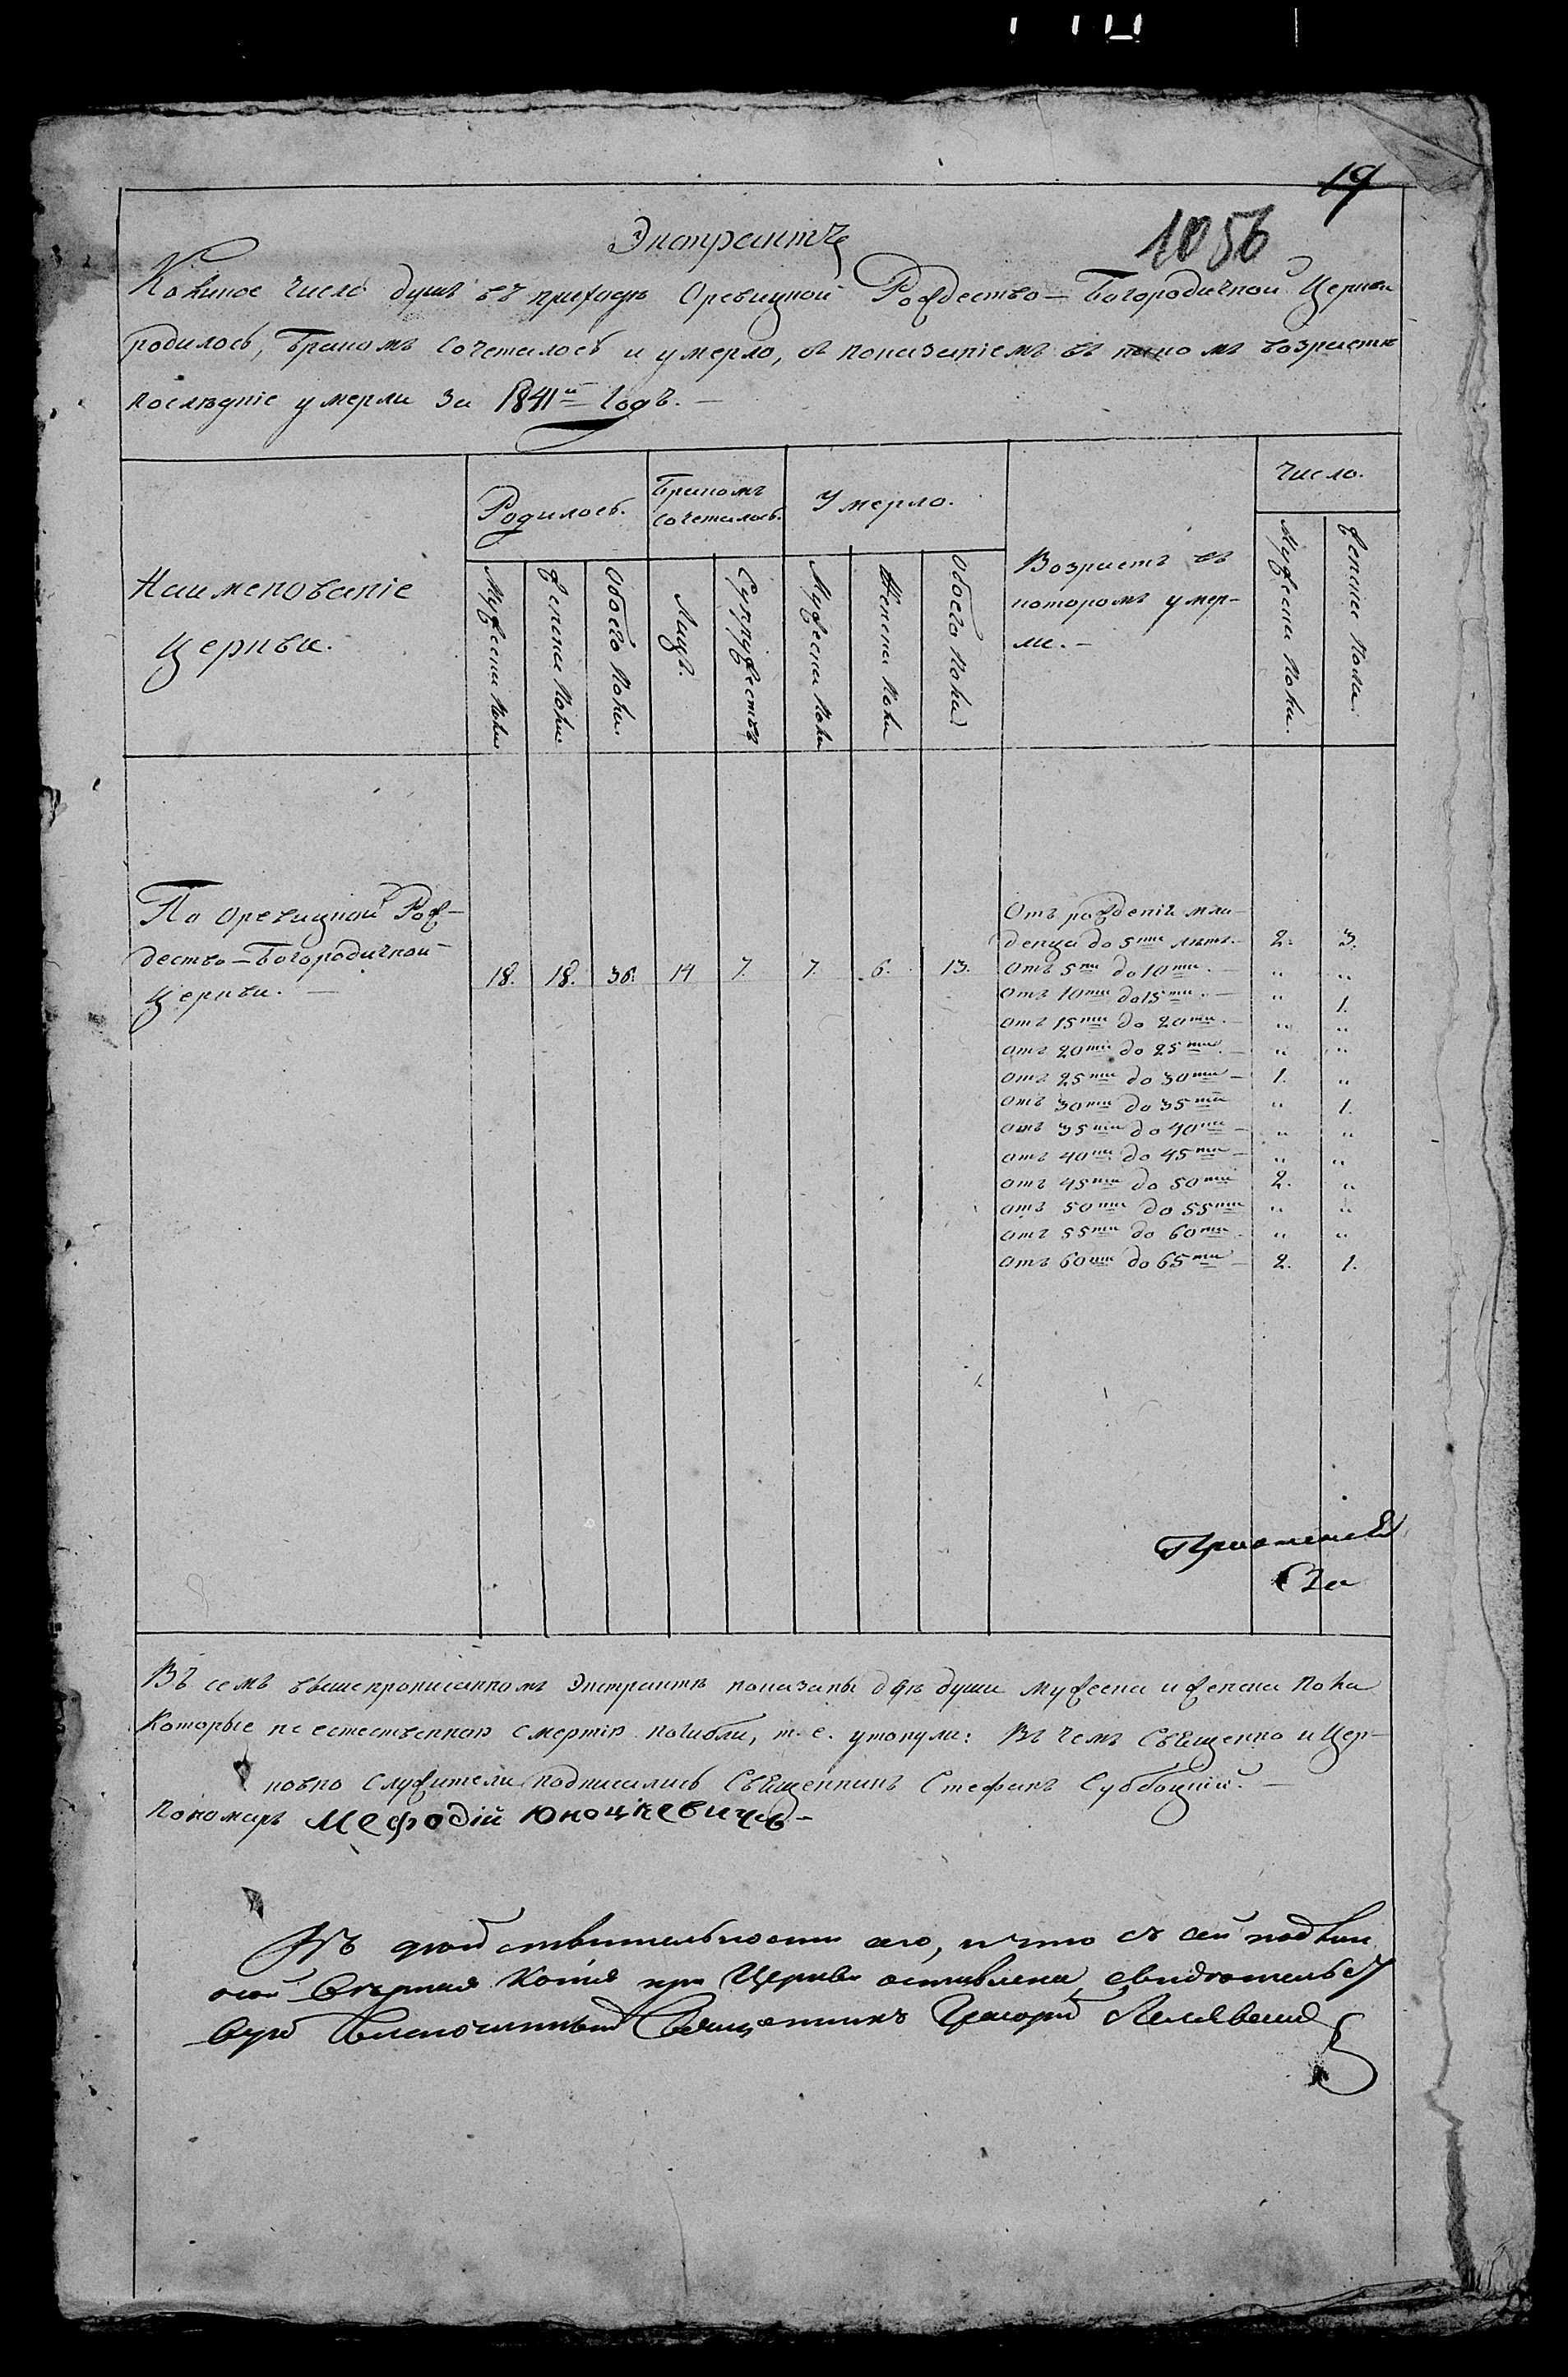 19
1056
Экстрактъ
Коликое число душъ въ приходѣ Оревицкой Рождество-Богородичной Церкви
родилось, бракомъ сочеталось и умерло, съ показаніемъ въ какомъ возрастѣ
послѣдніе умерли за 1841й годъ.
Наименованіе церкви.
Родилось.
Бракомъ сочеталось.
Умерло.
Возрастъ въ которомъ умер-
ли.-
Число.
Мужеска пола
Женска пола
Обоего пола.
Лицъ.
Супружествъ
Мужеска пола
Женска пола
Обоего пола
Мужеска пола.
Женска пола.
По Оревицкой Рож-
дество-Богородичной
Церкви. 18. 18. 36. 14 7. 7. 6. 13.
Отъ рожденія мла-
денца до 5ти лѣтъ.- 2. 3.
Отъ 5ти до 10ти.- " "
Отъ 10ти до 15ти.- " 1.
Отъ 15ти до 20ти.- " "
Отъ 20ти до 25ти.- " "
Отъ 25ти до 30ти- 1. "
Отъ 30ти до 35ти " 1.
Отъ 35ти до 40ти- " "
Отъ 40ти до 45ти- " "
Отъ 45ти до 50ти 2. "
Отъ 50ти до 55ти " "
Отъ 55ти до 60ти. " "
Отъ 60ти до 65ти- 2. 1.
Въ семъ вышепрописанномъ Экстрактѣ показаны двѣ души мужеска и женска пола
которые не естественною смертію погибли, т. е. утонули: Въ чемъ Священно и Цер-
ковно служители подписались Священникъ Стефанъ Субботцкій.-
Пономарь Мефодій Юноцкевичъ-
Въ дѣйствительности сего, и что съ сей
вѣрная копія при Церкви оставлена, свидѣтельст
вую Благочинный Священникъ Григорій